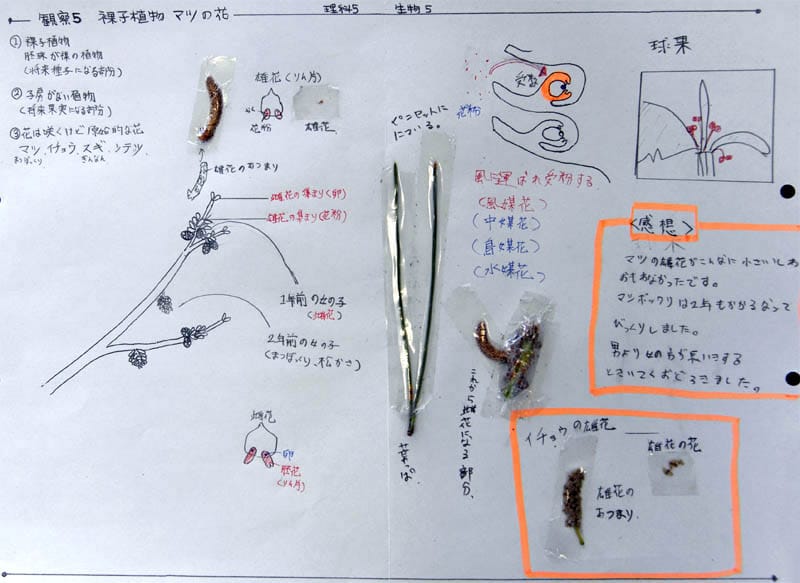 観察5 裸子植物 マツの花
理科5 生物5
① 裸子植物
胚珠が裸の植物
(将来種子になる部分)
② 子房がない植物
(将来果実になる部分)
③ 花は咲くけど原始的な花
マツ、イチョウ、スギ、ソテツ、
ぎんなん
雄花(りん片)
花粉
雄花
雄花のあつまり
雌花の集まり(卵)
雄花の集まり(花粉)
1年前の女の子
(雌花)
2年前の女の子
(まつぼっくり、松かさ)
雌花
卵
胚花
(りん片)
ピンセットに
にている。
葉っぱ
受粉
花粉
風に運ばれ受粉する
(風媒花)
(中媒花)
(鳥媒花)
(水媒花)
これから雌花になる部分、
球果
<感想>
マツの雄花がこんなに小さいしわ
おもわなかったです。
マツボックリは2年もかかるなって
びっくりしました。
男より女の方が長いきする
ときいておどろきました。
イチョウの雄花
雄花の花
雄花の
あつまり